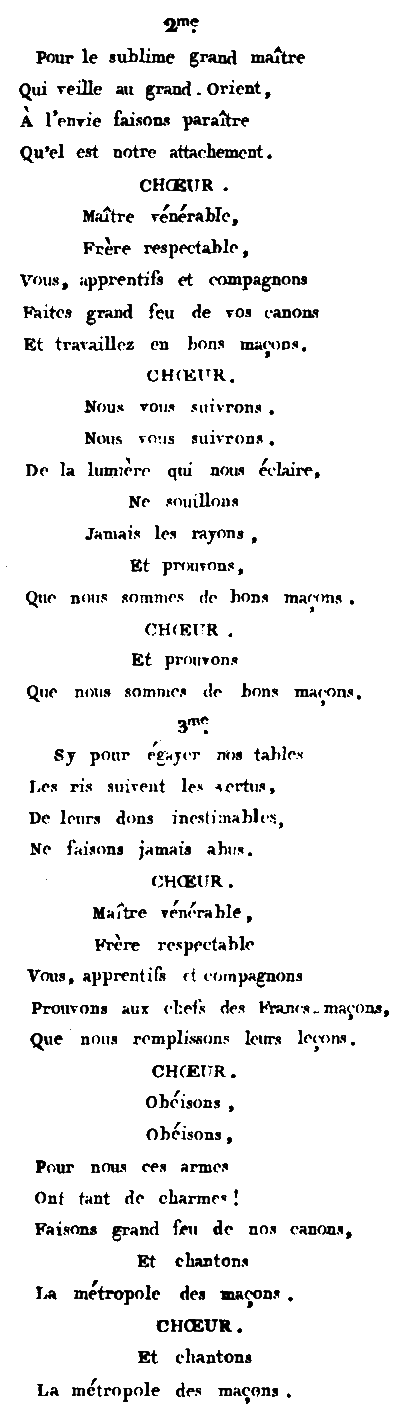 2me.
Pour le sublime grand maître
Qui veille au grand-Orient,
À l'envie faisons paraître
Qu'el est notre attachement.
CHŒUR.
Maître vénérable,
Frère respectable,
Vous, apprentifs et compagnons
Faites grand feu de vos canons
Et travaillez en bons maçons.
CHŒUR.
Nous vous suivrons.
Nous vous suivrons.
De la lumière qui nous éclaire,
Ne souillons
Jamais les rayons,
Et prouvons,
Que nous sommes de bons maçons.
CHŒUR.
Et prouvons
Que nous sommes de bons maçons.
3me.
Sy pour égayer nos tables
Les ris suivent les vertus,
De leurs dons inestimables,
Ne faisons jamais abus.
CHŒUR.
Maître vénérable,
Frère respectable
Vous, apprentifs et compagnons
Prouvons aux chefs des Francs-maçons,
Que nous remplissons leurs leçons.
CHŒUR.
Obéisons,
Obéisons,
Pour nous ces armes
Ont tant de charmes!
Faisons grand feu de nos canons,
Et chantons
La métropole des maçons.
CHŒUR.
Et chantons
La métropole des maçons.